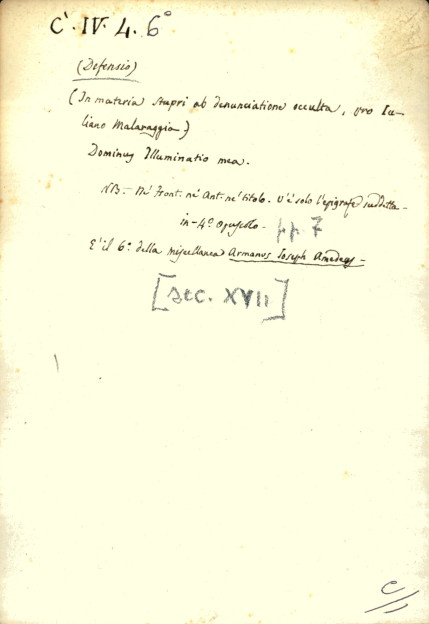 C. IV. 4. 6°
(Defensio)
(In materia stupri ob denunciatione occulta, pro Iu-
liano Malaraggia)
Dominus Illuminatio mea.
NB. - Nè Front. nè Ant. nè titolo. V'è solo l'epigrafe suddetta -
in - 4° opuscolo - pp. 7
E' il 6° della miscellanea Armanus Ioseph Amedeus -
[sec. XVII]